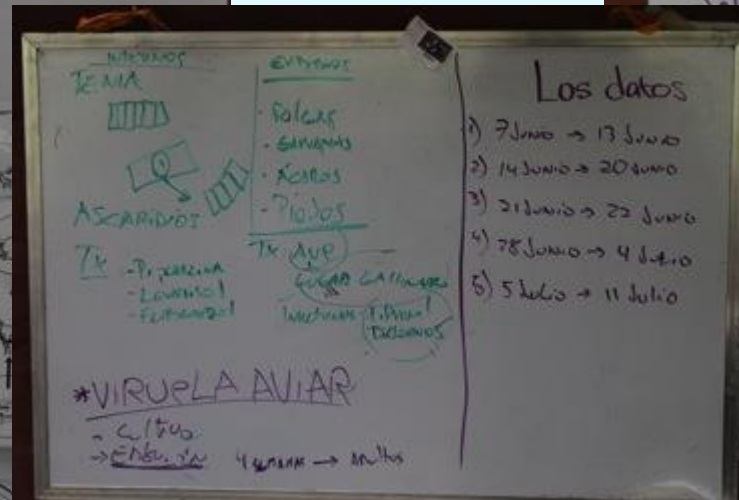 INTERNOS
TENIA
ASCARIDIOS
Tx
- Piperazina
EXTERNOS
- Pulgas
- GARRAPATAS
- ÁCAROS
- Piojos
Tx AVE
LUGAR GALLINERO
*VIRUELA AVIAR
4 semanas → adultos
Los datos
1) 7 Junio → 13 Junio
2) 14 Junio → 20 Junio
3) 21 Junio → 22 Junio
4) 28 Junio → 4 Julio
5) 5 Julio → 11 Julio